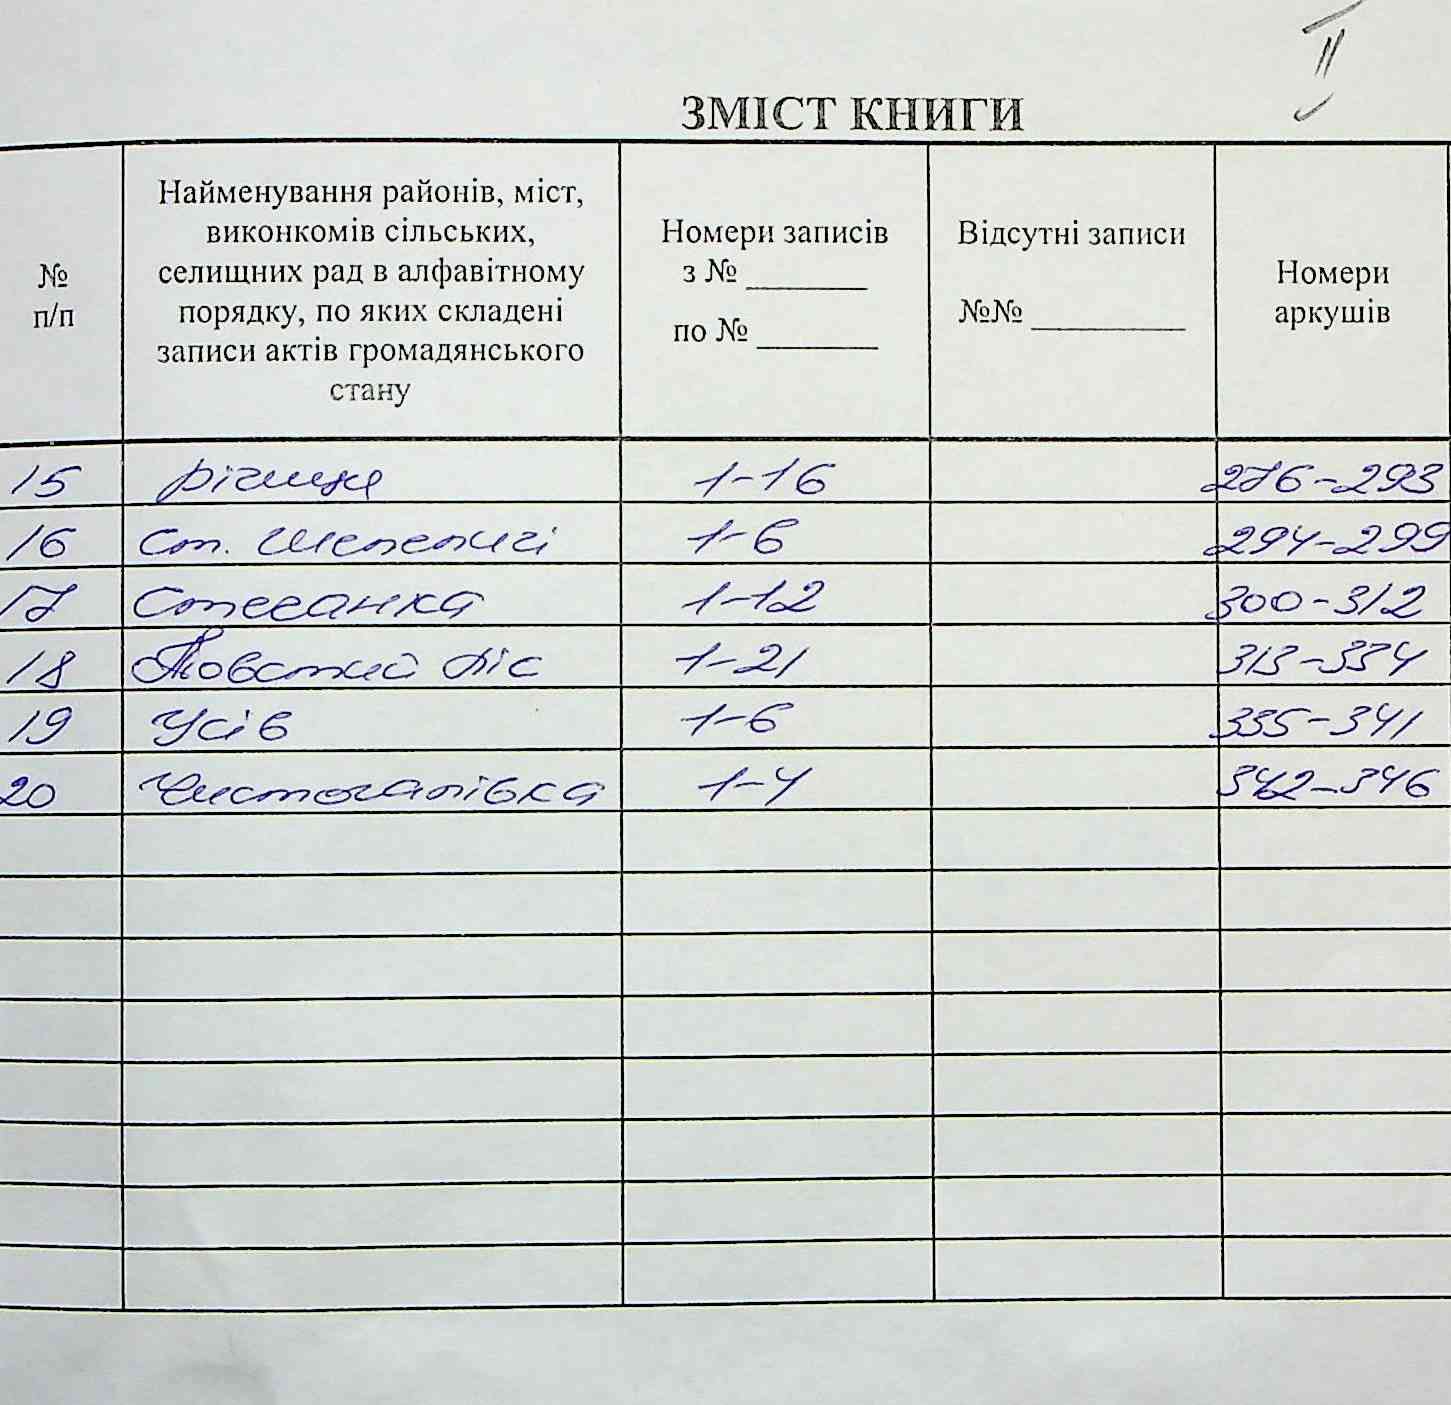 II
ЗМІСТ КНИГИ
№ п/п
Найменування районів, міст,
виконкомів сільських,
селищних рад в алфавітному
порядку, по яких складені
записи актів громадянського
стану
Номери записів
з № ________
по № ________
Відсутні записи
№№ __________
Номери
аркушів
15 Річиця 1-16 276-293
16 Ст. Шепеличі 1-6 294-299
17 Стечанка 1-12 300-312
18 Товстий Ліс 1-21 313-334
19 Усів 1-6 335-341
20 Чистогалівка 1-4 342-346